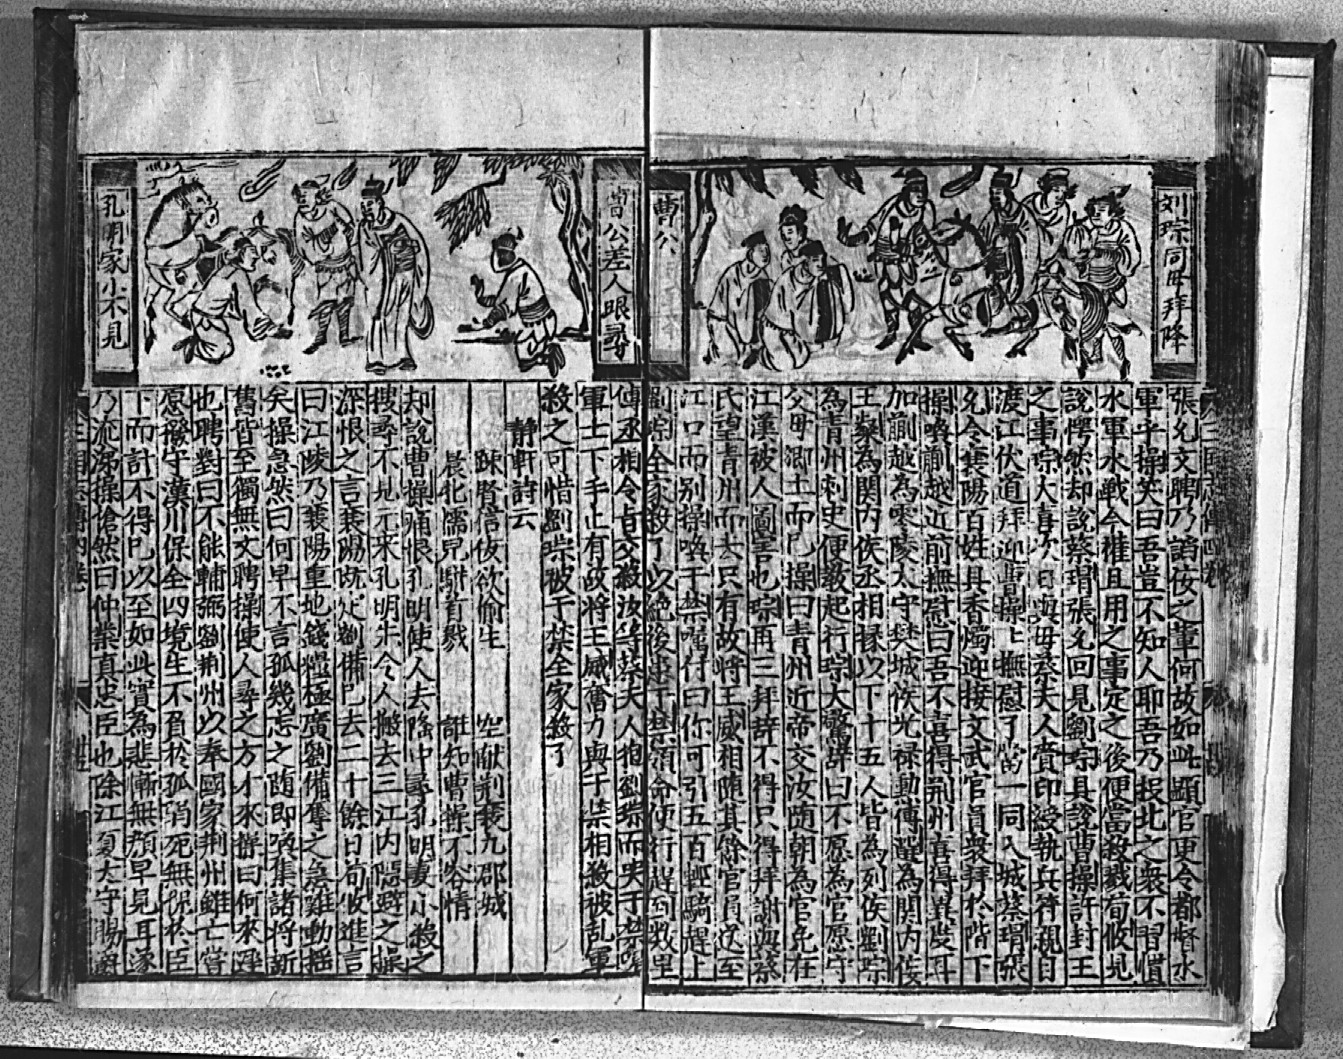 刘琮同母拜降
張允文聘乃謟佞之輩何故如此顕官更令都督水
軍乎操笑曰吾豈不知人耶吾乃提北之衆不習慣
水軍水戰今權且用之事定之後便當殺戮荀攸見
說愕然却說蔡瑁張允回見劉琮具說曹操許封王
之事琮大喜次日與母蔡夫人賫印綬執兵符親自
渡江伏道拜迎曹操上撫慰了當一同入城蔡瑁張
允令襄陽百姓具香燭迎接文武官員衆拜於階下
操喚蒯越近前撫慰曰吾不喜得荊州喜得異度耳
加蒯越為零陵太守樊城侯光禄勳傅巽為関内侯
王粲為関内侯丞相掾以下十五人皆為列侯劉琮
為青州刺史便教起行琮大驚辞曰不愿為官愿守
父母鄉土而已操曰青州近帝交汝随朝為官免在
江漢被人圖害也琮再三拜辞不得只得拜謝與蔡
氏望青州而去只有故將王威相随其餘官員送至
江口而别操喚于禁囑付曰你可引五百輕騎趕上
劉琮全家殺了以絶後患于禁領命便行趕到數里
曹公差人跟尋
傳丞相令旨交殺汝等蔡夫人抱劉琮而哭于禁喝
軍士下手止有故將王威奮力與于禁相殺被乱軍
殺之可惜劉琮被于禁全家殺了
静軒詩云
踈賢信佞欲偷生 空献荆襄九郡城
晨牝儒兒駢首戮 誰知曹操不容情
却說曹操痛恨孔明使人去隆中尋孔明妻小殺之
搜尋不見元来孔明先令人搬去三江内隱避之操
深恨之言襄陽既定劉備已去二十餘日荀攸進言
曰江陵乃襄陽重地錢糧極廣劉備奪之急難動摇
矣操忽然曰何早不言孤幾忘之随即喚集諸将新
舊皆至獨無文聘操使人尋之方才來聘曰何來遲
也聘對曰不能輔弼劉荆州以奉國家荆州雖亡嘗
愿據守漢川保全四境生不負於孤弱死無愧於臣
下而計不得已以至如此實為悲慚無顔早見耳遂
乃流涕操愴然曰仲業真忠臣也除江夏太守賜爵
孔明家小不見